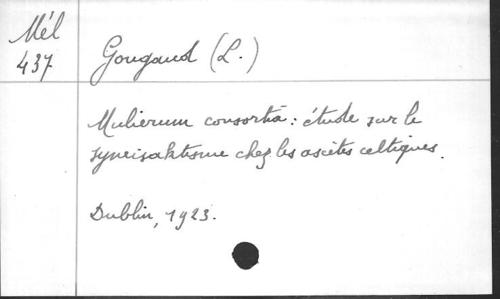 Mél
437
Gougaud (L.)
Mulierum consortia : étude sur le
syneisaktisme chez les ascètes celtiques.
Dublin, 1923.